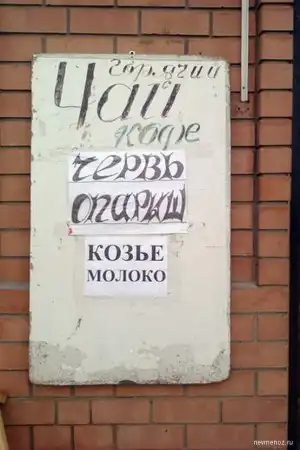 горячий
Чай
кофе
червь
опарыш
КОЗЬЕ
МОЛОКО
nevmenoz.ru